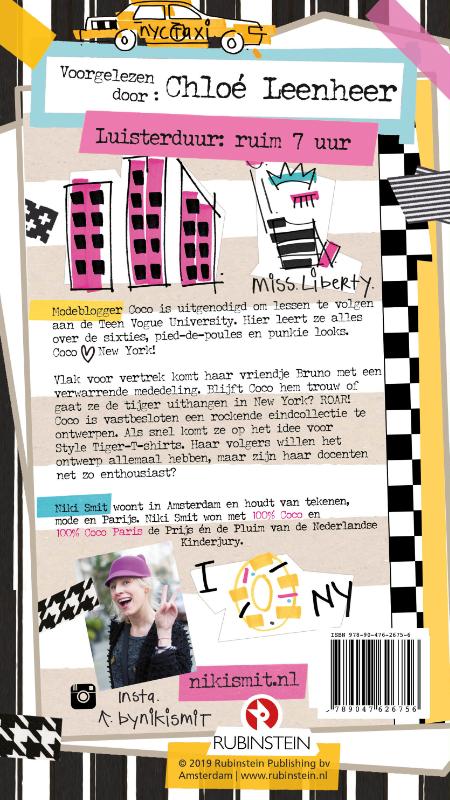 nyc Taxi
Voorgelezen
door : Chloé Leenheer
Luisterduur: ruim 7 uur
Miss. Liberty.
Modeblogger Coco is uitgenodigd om lessen te volgen
aan de Teen Vogue University. Hier leert ze alles
over de sixties, pied-de-poules en punkie looks.
Coco ♡ New York!
Vlak voor vertrek komt haar vriendje Bruno met een
verwarrende mededeling. Blijft Coco hem trouw of
gaat ze de tijger uithangen in New York? ROAR!
Coco is vastbesloten een rockende eindcollectie te
ontwerpen. Als snel komt ze op het idee voor
Style Tiger-T-shirts. Haar volgers willen het
ontwerp allemaal hebben, maar zijn haar docenten
net zo enthousiast?
Niki Smit woont in Amsterdam en houdt van tekenen,
mode en Parijs. Niki Smit won met 100% Coco en
100% Coco Paris de Prijs én de Pluim van de Nederlandse
Kinderjury.
I NY
ISBN 978-90-476-2675-6
9 789047 626756
nikismit.nl
insta.
bynikismit
RUBINSTEIN
© 2019 Rubinstein Publishing bv
Amsterdam | www.rubinstein.nl